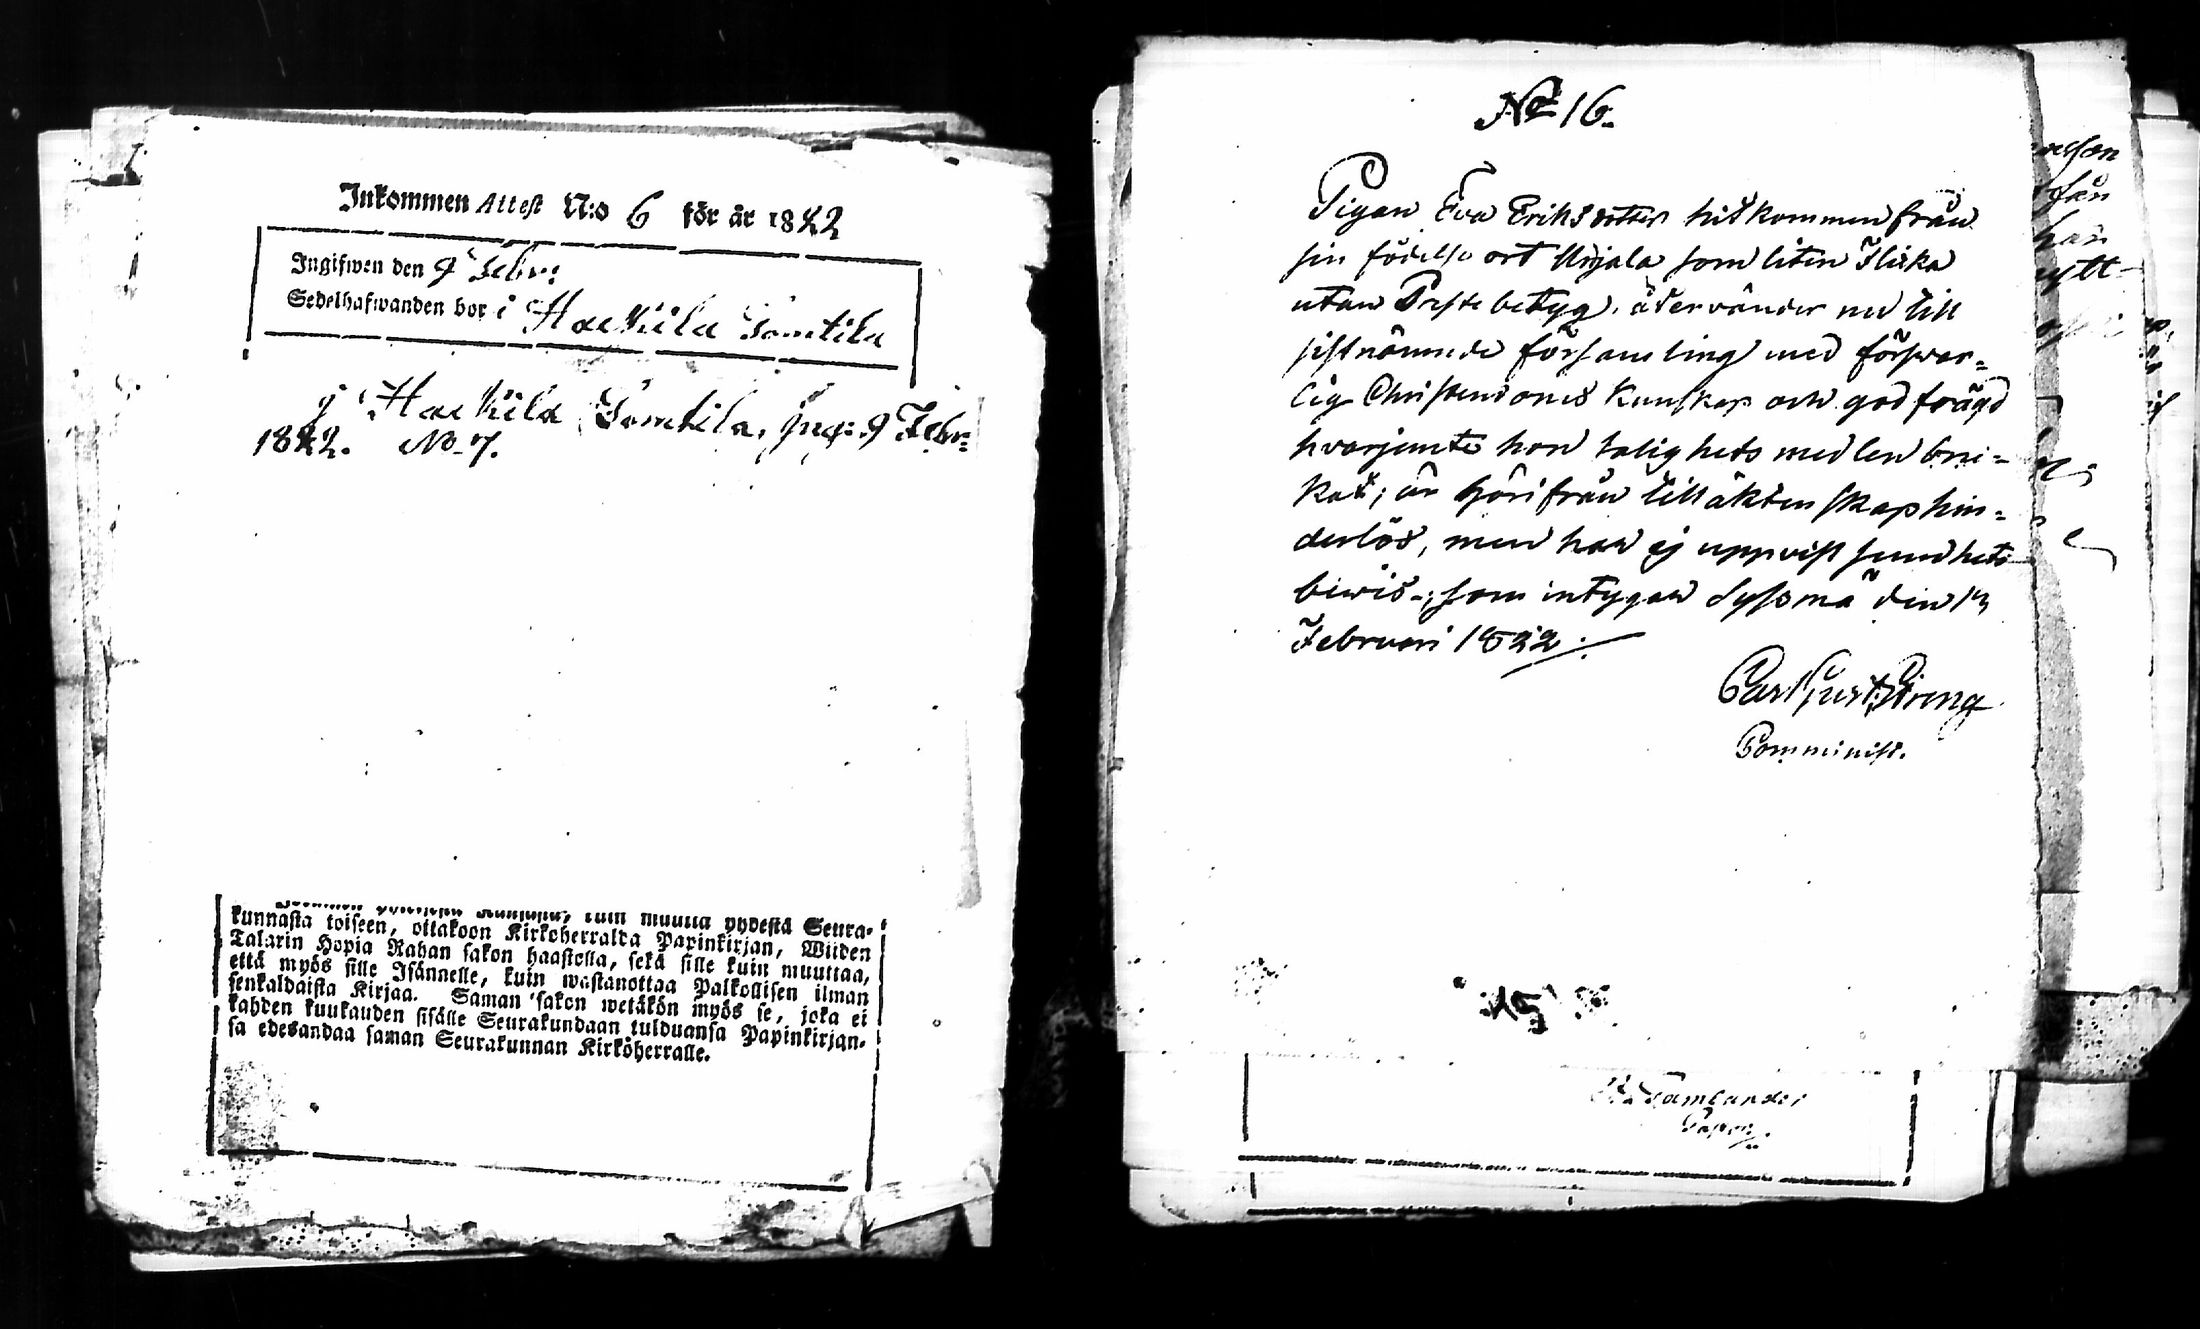 Inkommen Attest N:o 6 för år 1822
Ingifwen den 9 Febr:
Sedelhafwanden bor i Hackila Tomtila
j Hackila Tomtila, Ing: 9 Febr:
1822. No 7.
kuin muutta yhdestä Seura-
kunnasta toiseen, ottakoon Kirkoherralda Papinkirjan, Wiiden
Talarin Hopia Rahan sakon haastolla, sekä sille kuin muuttaa,
että myös sille Isännelle, kuin wastanottaa Palkollisen ilman
senkaldaista Kirjaa. Saman sakon wetäkön myös se, joka ei
kahden kuukauden sisälle Seurakundaan tulduansa Papinkirjan-
sa edesandaa saman Seurakunnan Kirkoherralle.
No 16.
Pigan Eva Eriksdotter hitkommen från
sin födelse ort Urjala som liten Flicka
utan Preste betyg, återvänder nu till
sistnämnde församling med försvar-
lig Christendoms Kunskap och god frägd
hvarjemte hon salighets medlen bru-
kat; är härifrån till äktenskap hin-
derlös, men har ej uppvist sundhets
bewis; som intygar Sysmä den
Februari 1822
Carl Gust Streng
Comminist.
15